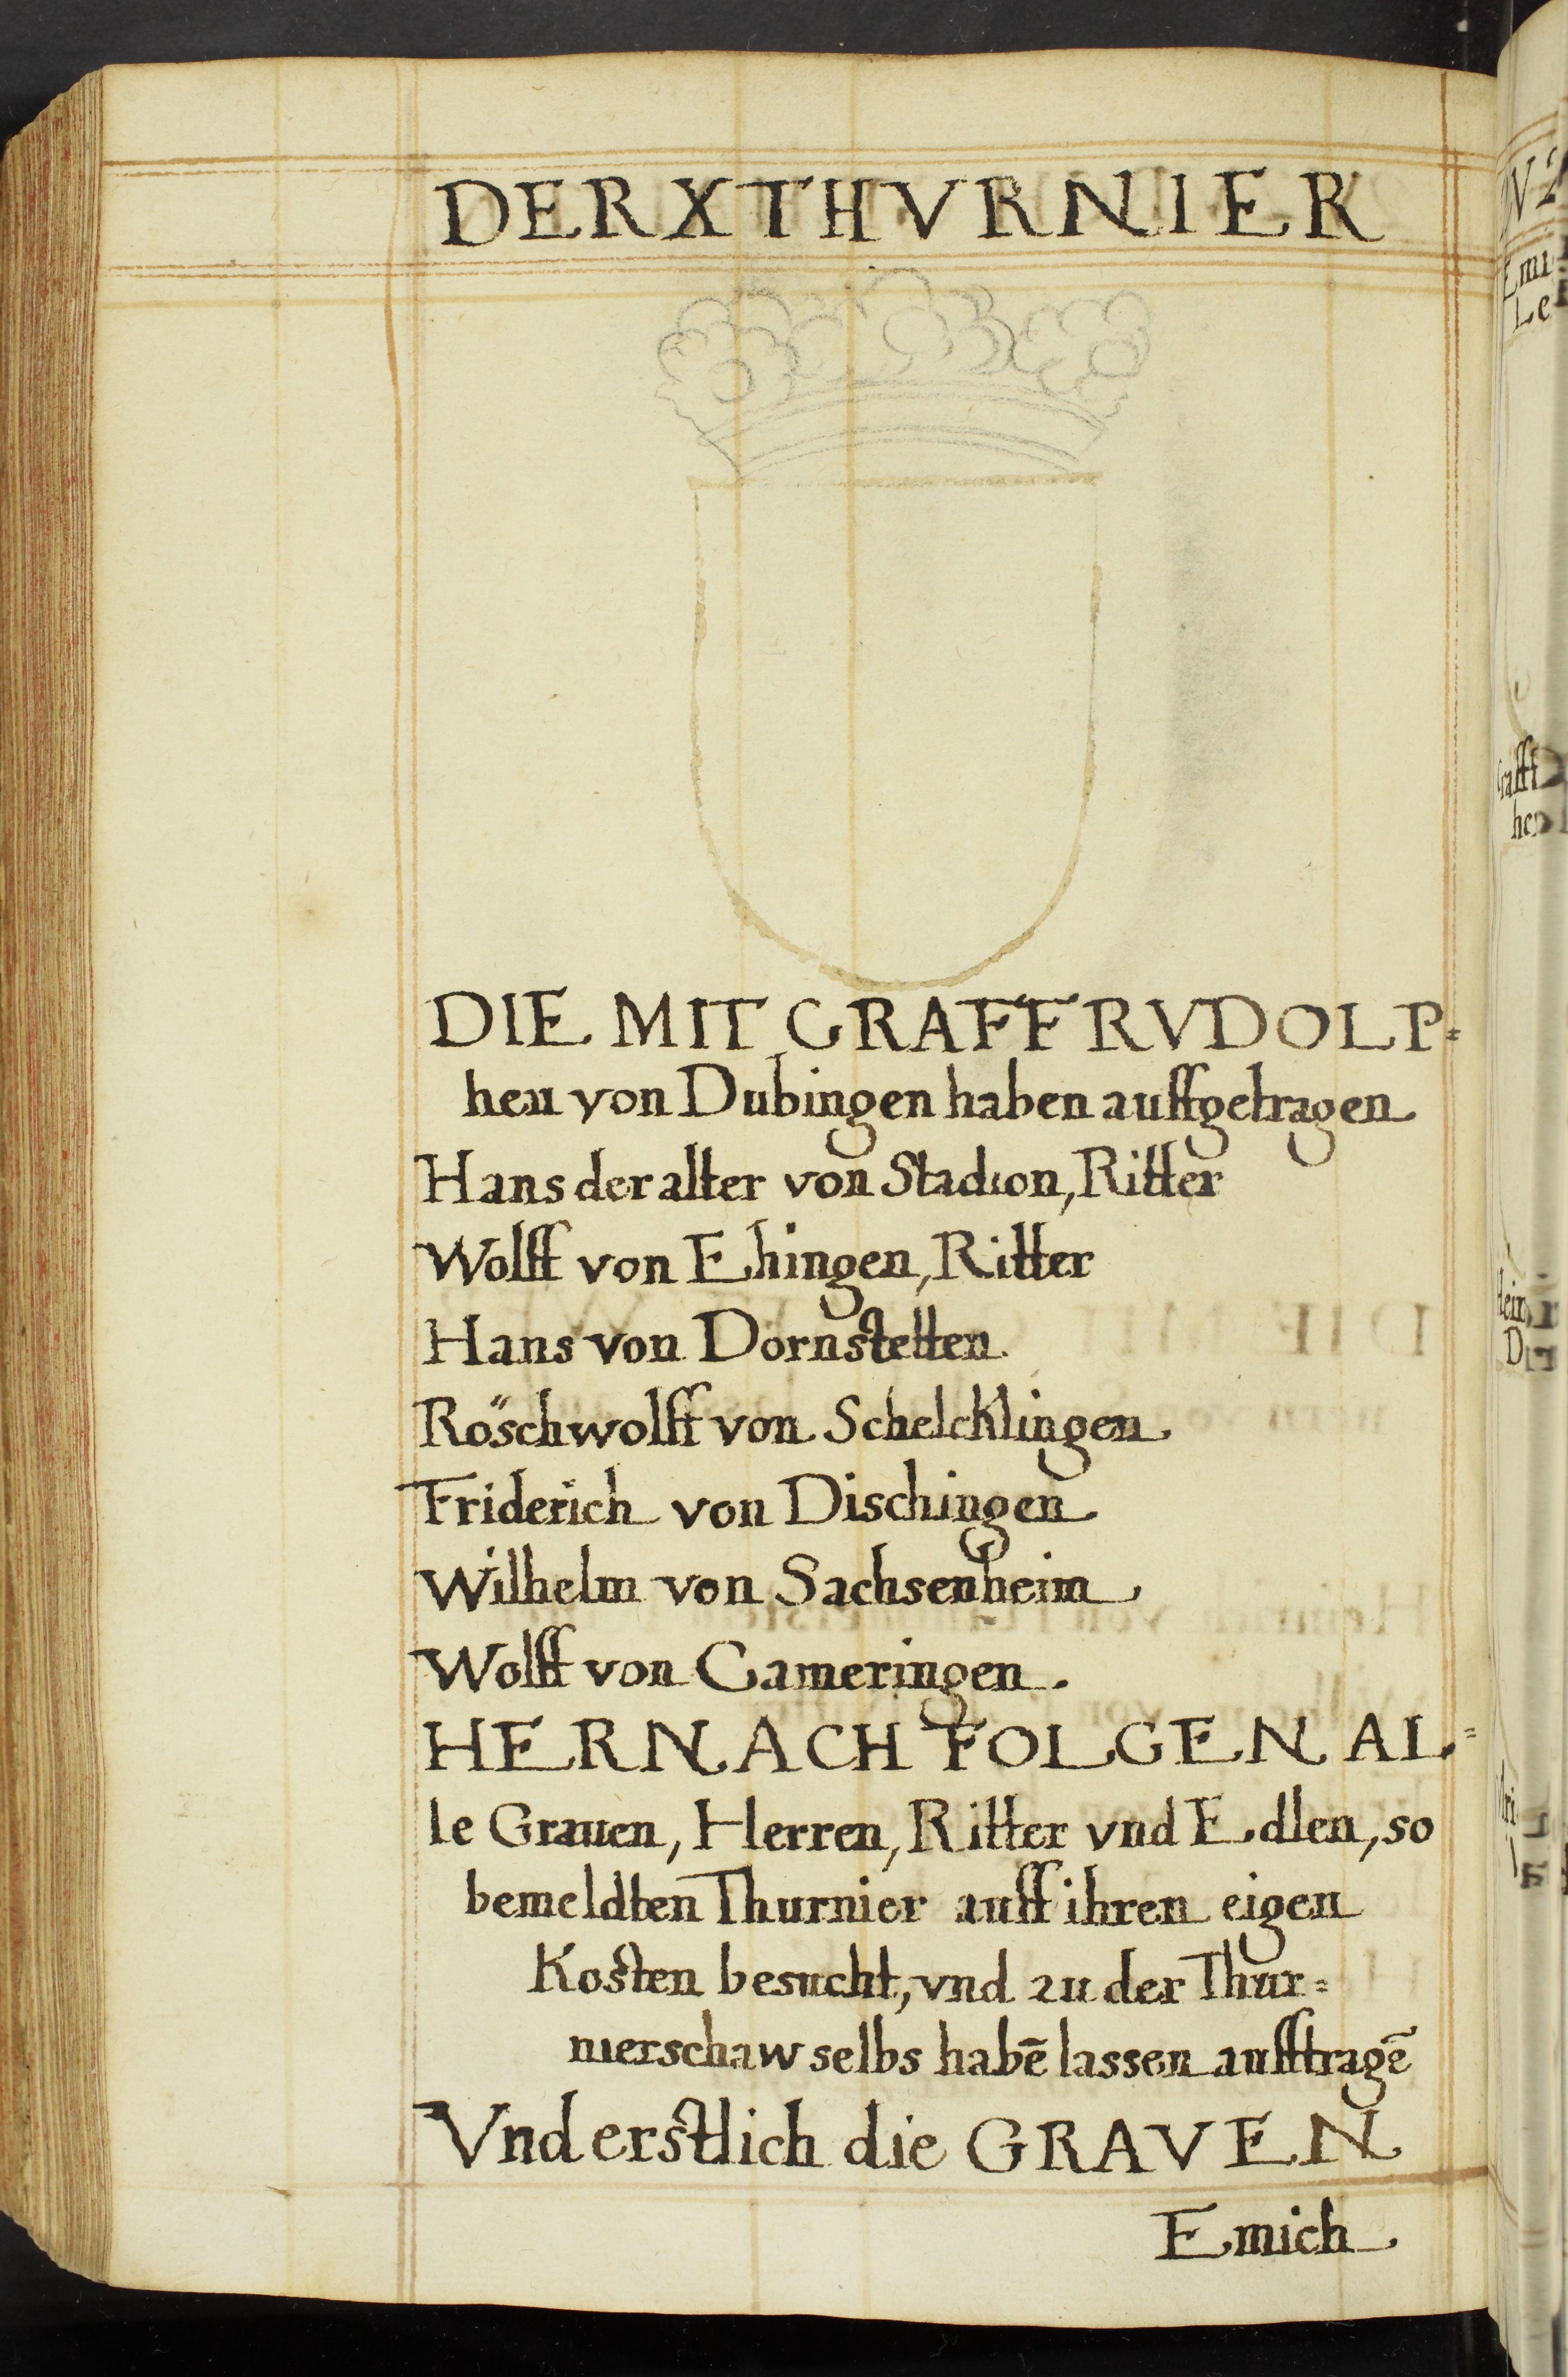 DER X THVRNIER
DIE MIT GRAFF RVDOLP=
hen von Dubingen haben auffgetragen
Hans der alter von Stadion, Ritter
Wolff von Ehingen, Ritter
Hans von Dornstetten
Röschwolff von Schelcklingen
Friderich von Dischingen
Wilhelm von Sachsenheim
Wolff von Gameringen.
HERNACH FOLGEN AL=
le Grauen, Herren, Ritter vnd Edlen, so
bemeldten Thurnier auff ihren eigen
Kosten besucht, vnd zu der Thur=
nierschaw selbs habē lassen aufftragē
Vnd erstlich die GRAVEN
Emich